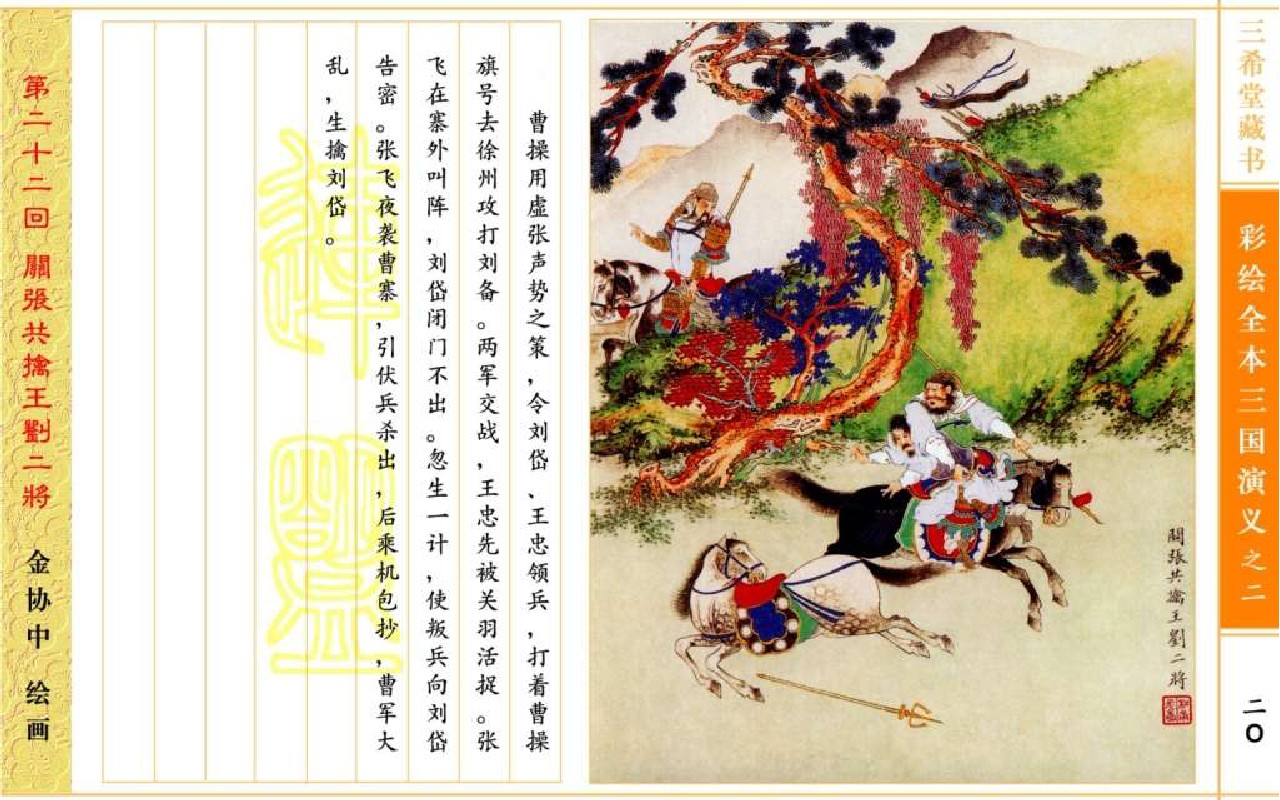 三希堂藏书
彩绘全本三国演义之二
二〇
關張共擒王劉二將
曹操用虚张声势之策，令刘岱、王忠领兵，打着曹操
旗号去徐州攻打刘备。两军交战，王忠先被关羽活捉。张
飞在寨外叫阵，刘岱闭门不出。忽生一计，使叛兵向刘岱
告密。张飞夜袭曹寨，引伏兵杀出，后乘机包抄，曹军大
乱，生擒刘岱。
第二十二回 關張共擒王劉二將 金协中 绘画